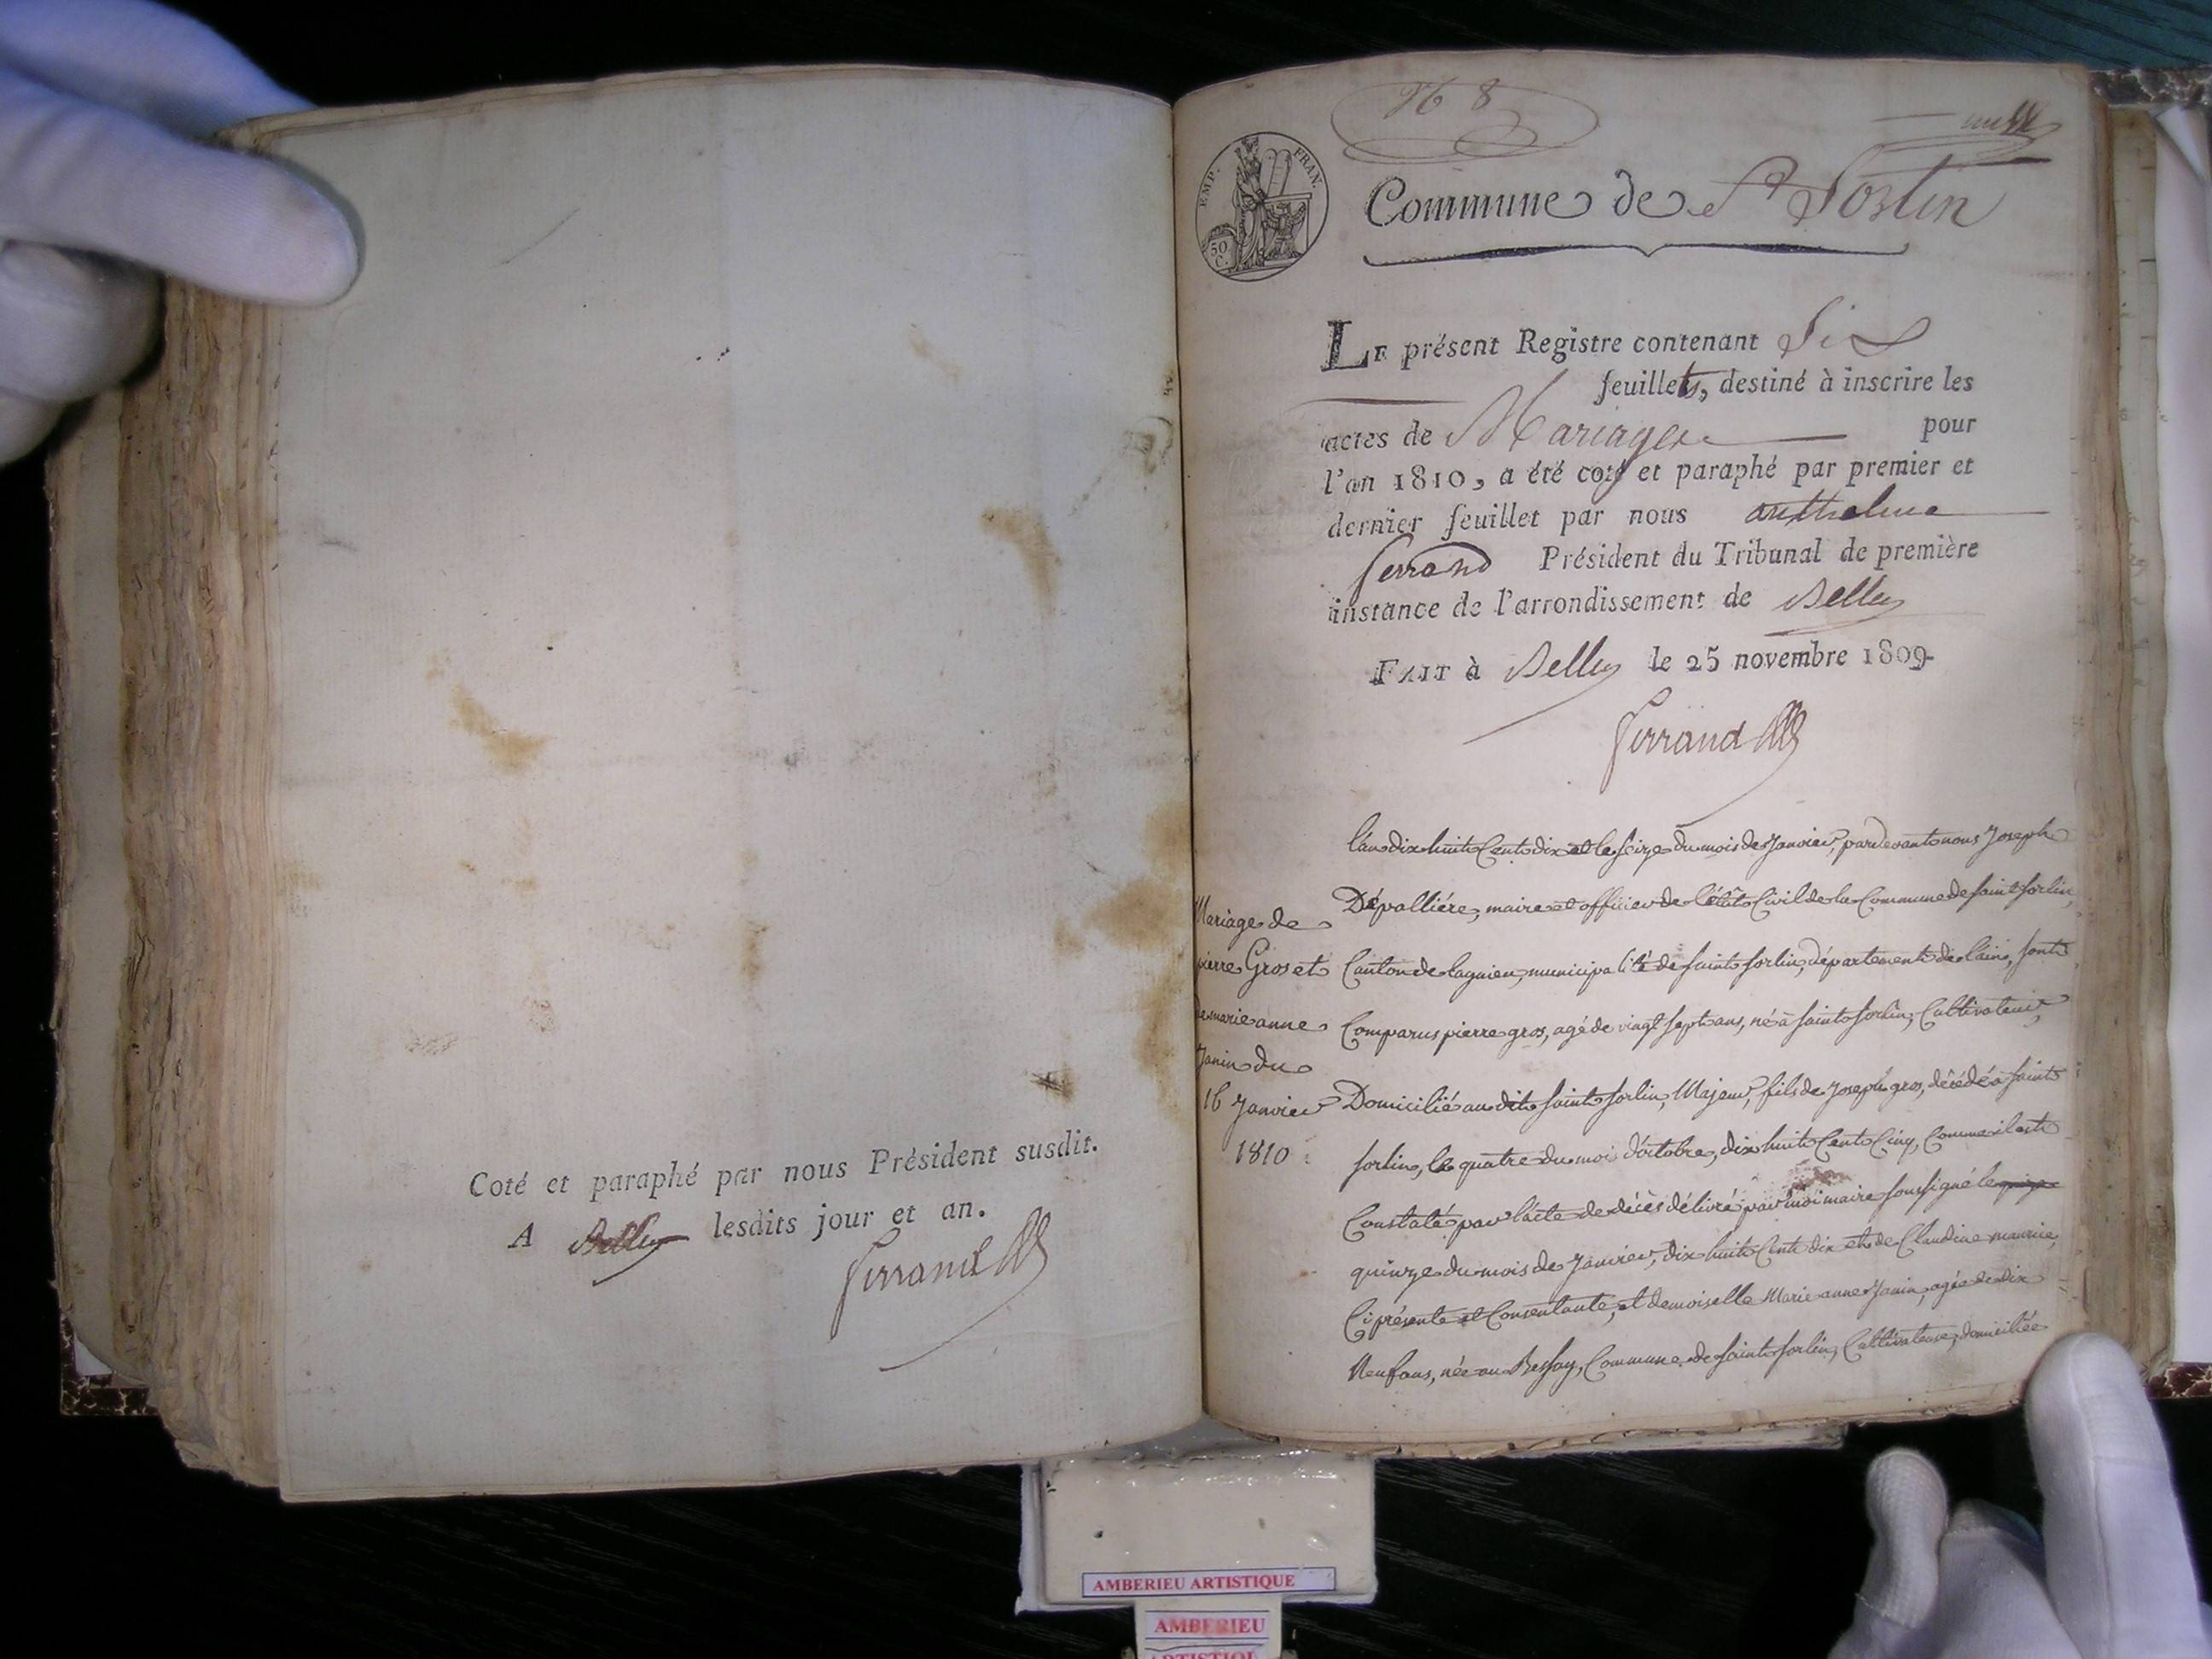 Coté et paraphé par nous Président susdit.
A Belley lesdits jour et an.
Ferrand
N 8
EMP. FRAN.
50 C.
Commune de St Sorlin
LE présent Registre contenant Six
feuillets, destiné à inscrire les
actes de Mariages pour
l'an 1810, a été coté et paraphé par premier et
dernier feuillet par nous anthelme
ferrand Président du Tribunal de première
instance de l'arrondissement de Belley
FAIT à Belley le 25 novembre 1809
Ferrand
Mariage de
pierre Gros et
de marie anne
Janin du
16 Janvier
1810
l'an dix huit Cent dix et le seize du mois de Janvier, pardevant nous Joseph
Dépalliére, maire et officier de l'état Civil de la Commune de saint sorlin,
Canton de lagnieu, municipalité de saint sorlin, département de lain, sont
Comparus pierre gros, agé de vingt sept ans, né à saint sorlin, Cultivateur,
Domicilié au dit saint sorlin, Majeur, fils de Joseph gros, décédé à saint
sorlin, le quatre du mois d'octobre, dix huit Cent Cinq, Comme il est
Constaté par l'acte de décès délivré par moi maire soussigné le
quinze du mois de Janvier, dix huit Cent dix et de Claudine maurice,
Ci présente et Consentante, et demoiselle Marie anne Janin, agée de dix
Neuf ans, née au Bessay, Commune de saint sorlin, Cultivateuse, domiciliée
AMBERIEU ARTISTIQUE
AMBERIEU
ARTISTIQUE